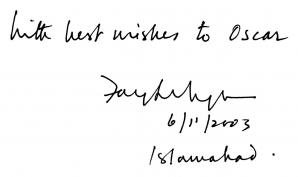 With best wishes to Oscar
6/11/2003
Islamabad.